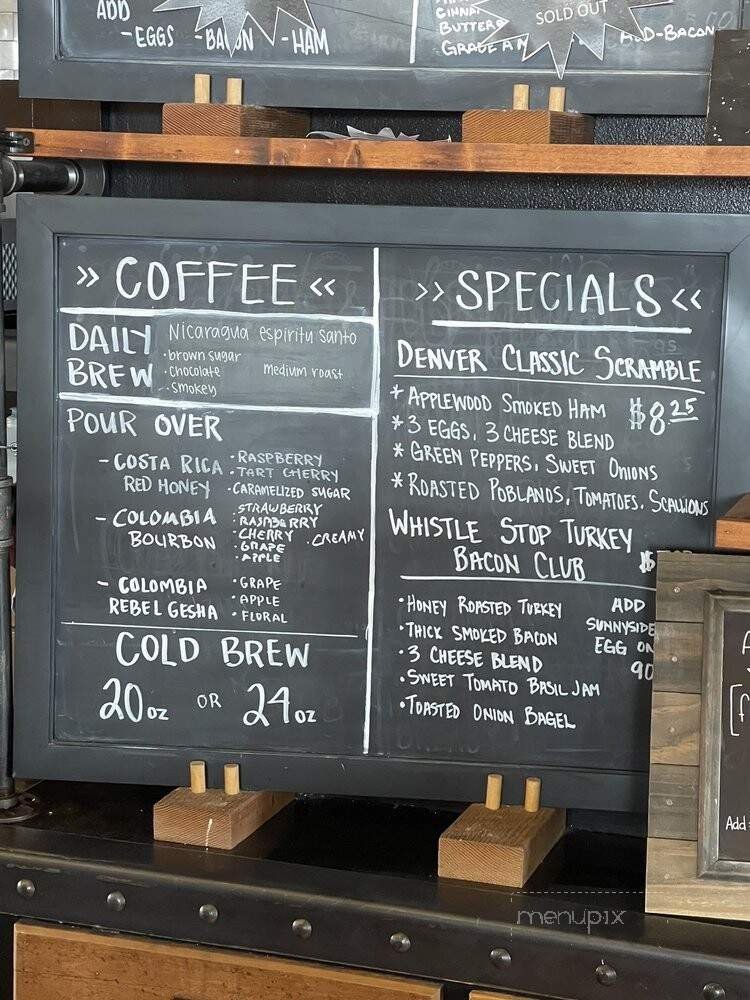 ADD
-EGGS -BACON -HAM
CINNA
BUTTER
GRADE A
SOLD OUT
ADD-BACON
>> COFFEE <<
DAILY BREW
Nicaragua espiritu santo
·brown sugar
·chocolate
medium roast
·smokey
POUR OVER
-COSTA RICA
RED HONEY
·RASPBERRY
·TART CHERRY
·CARAMELIZED SUGAR
-COLOMBIA
BOURBON
·STRAWBERRY
·RASPBERRY
·CHERRY ·CREAMY
·GRAPE
·APPLE
-COLOMBIA
REBEL GESHA
·GRAPE
·APPLE
·FLORAL
COLD BREW
20oz OR 24oz
>> SPECIALS <<
DENVER CLASSIC SCRAMBLE
* APPLEWOOD SMOKED HAM $8.25
* 3 EGGS, 3 CHEESE BLEND
* GREEN PEPPERS, SWEET ONIONS
* ROASTED POBLANOS, TOMATOES, SCALLIONS
WHISTLE STOP TURKEY
BACON CLUB $
·HONEY ROASTED TURKEY
·THICK SMOKED BACON
·3 CHEESE BLEND
·SWEET TOMATO BASIL JAM
·TOASTED ONION BAGEL
ADD
SUNNYSIDE
EGG ON
90
Add
menupix